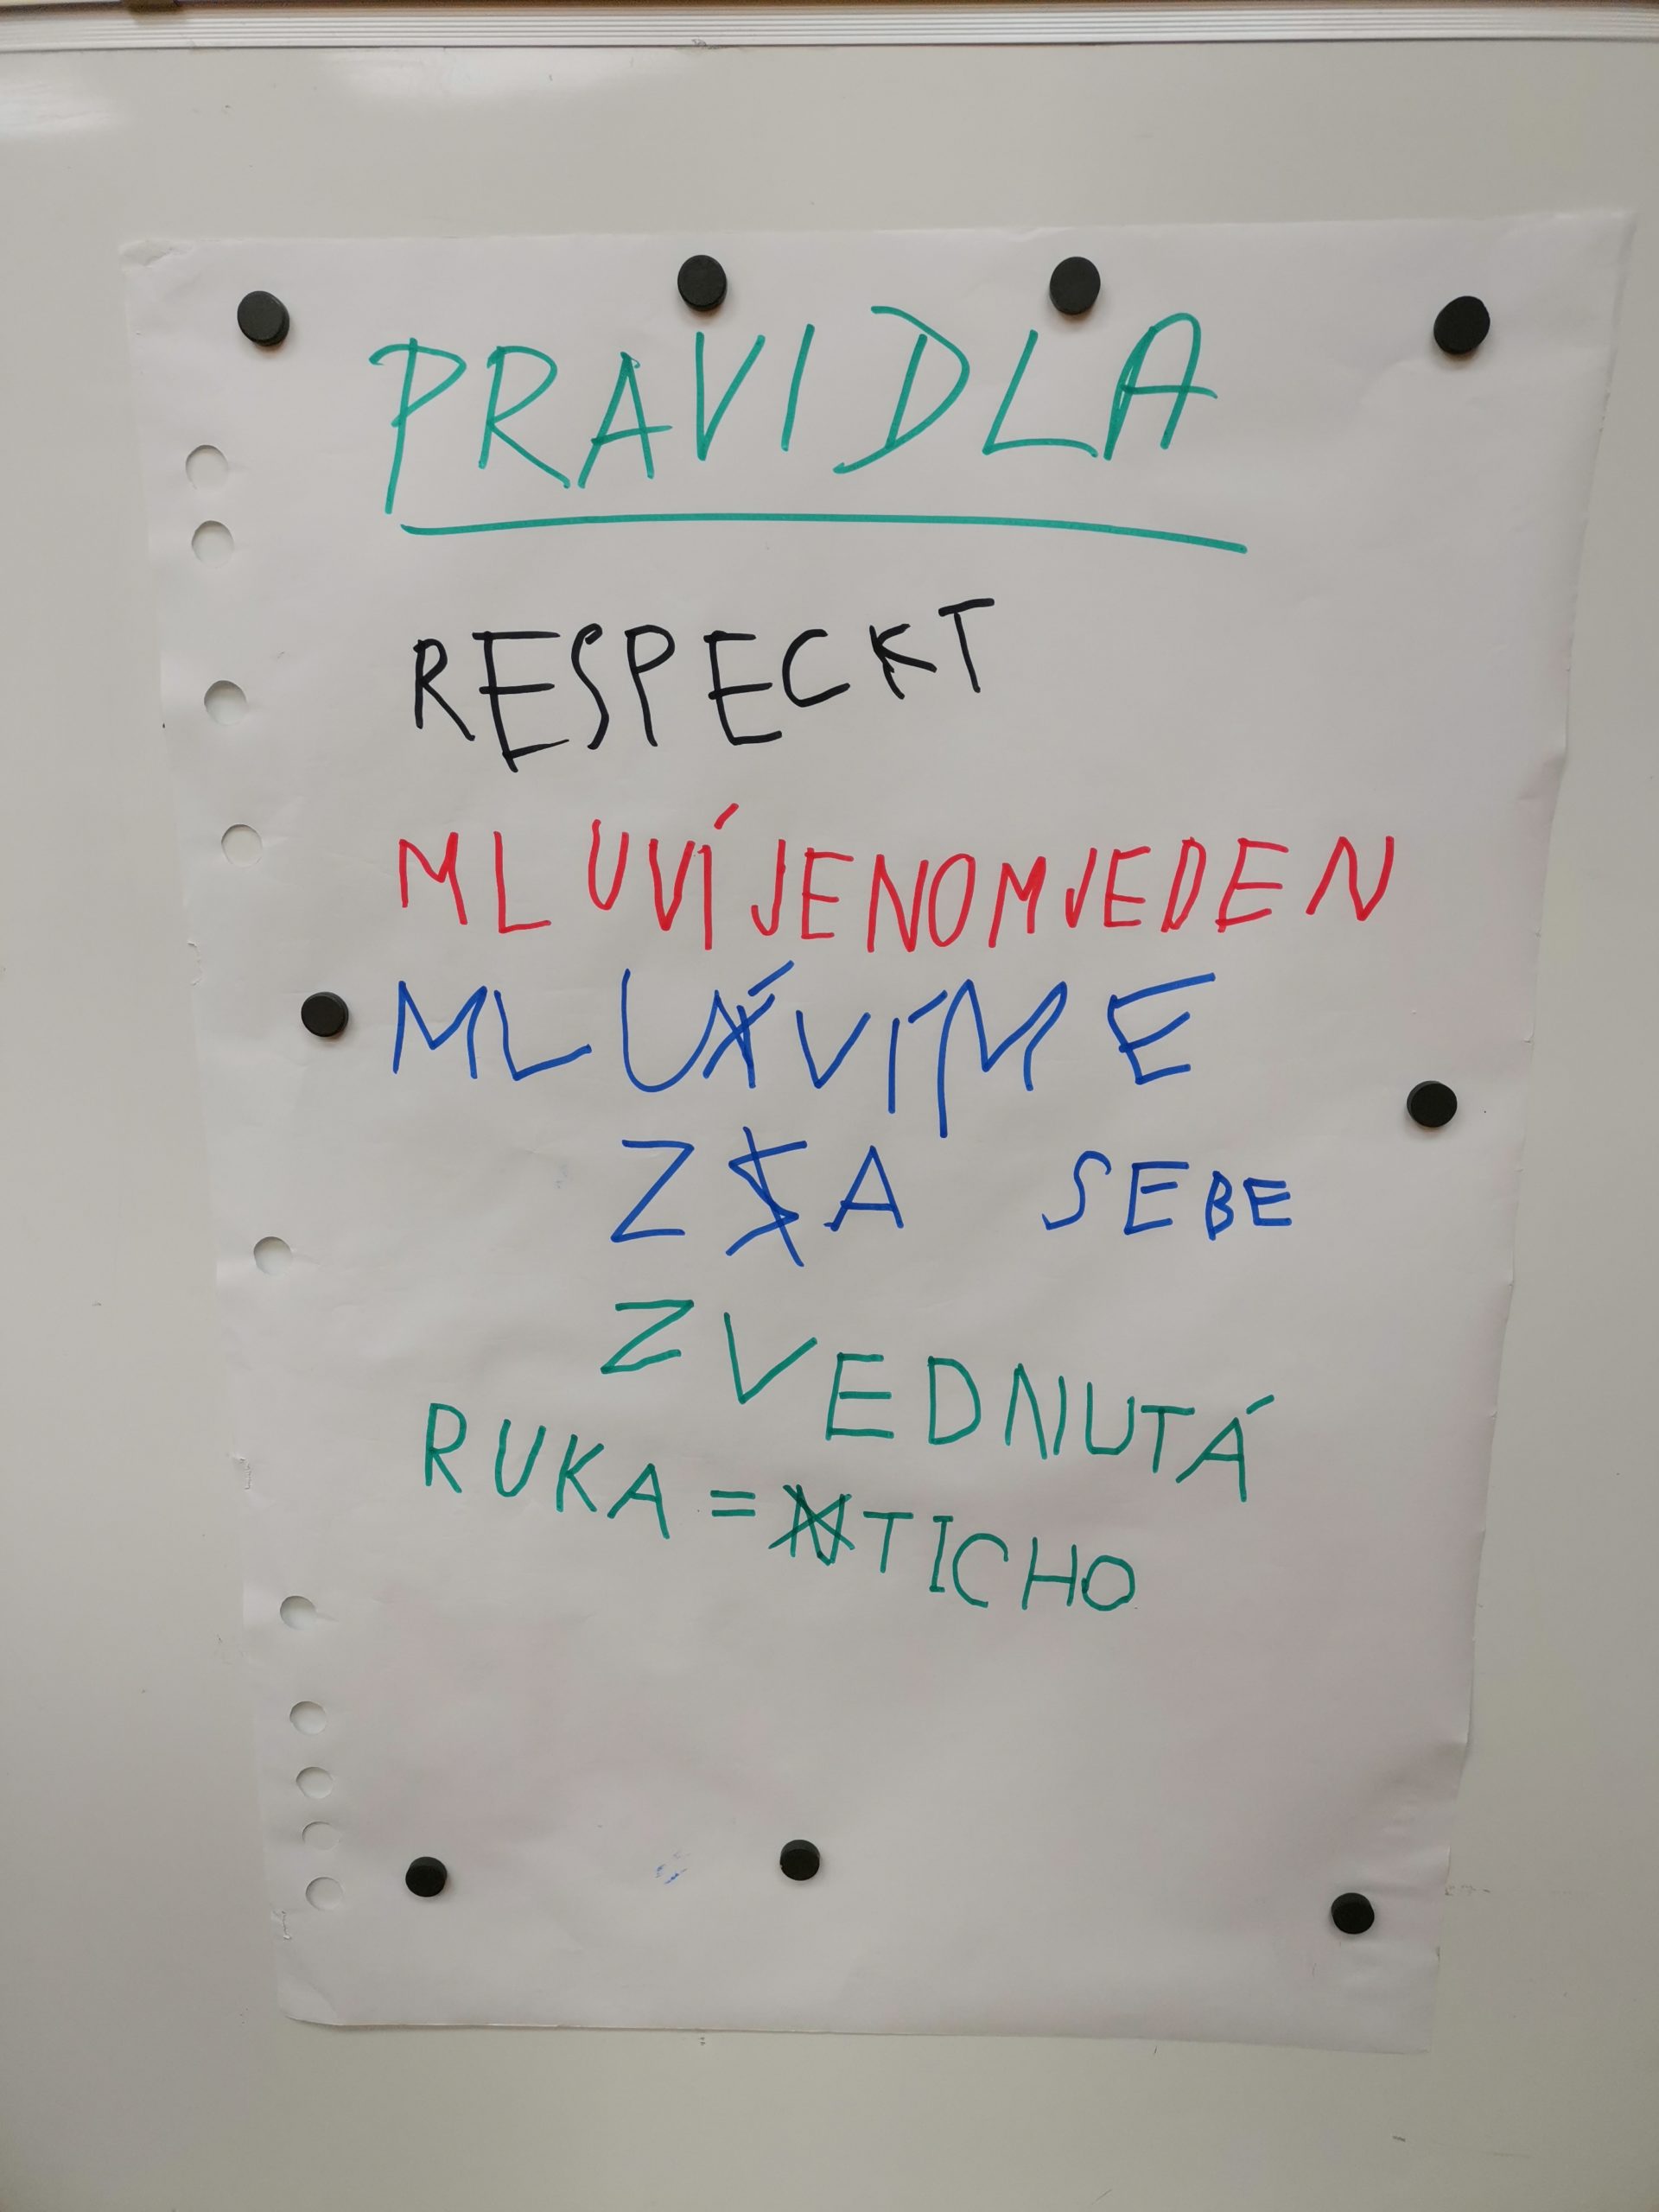 PRAVIDLA
RESPECKT
MLUVÍ JENOM JEDEN
MLUVÍME
ZA SEBE
ZVEDNUTÁ
RUKA = TICHO